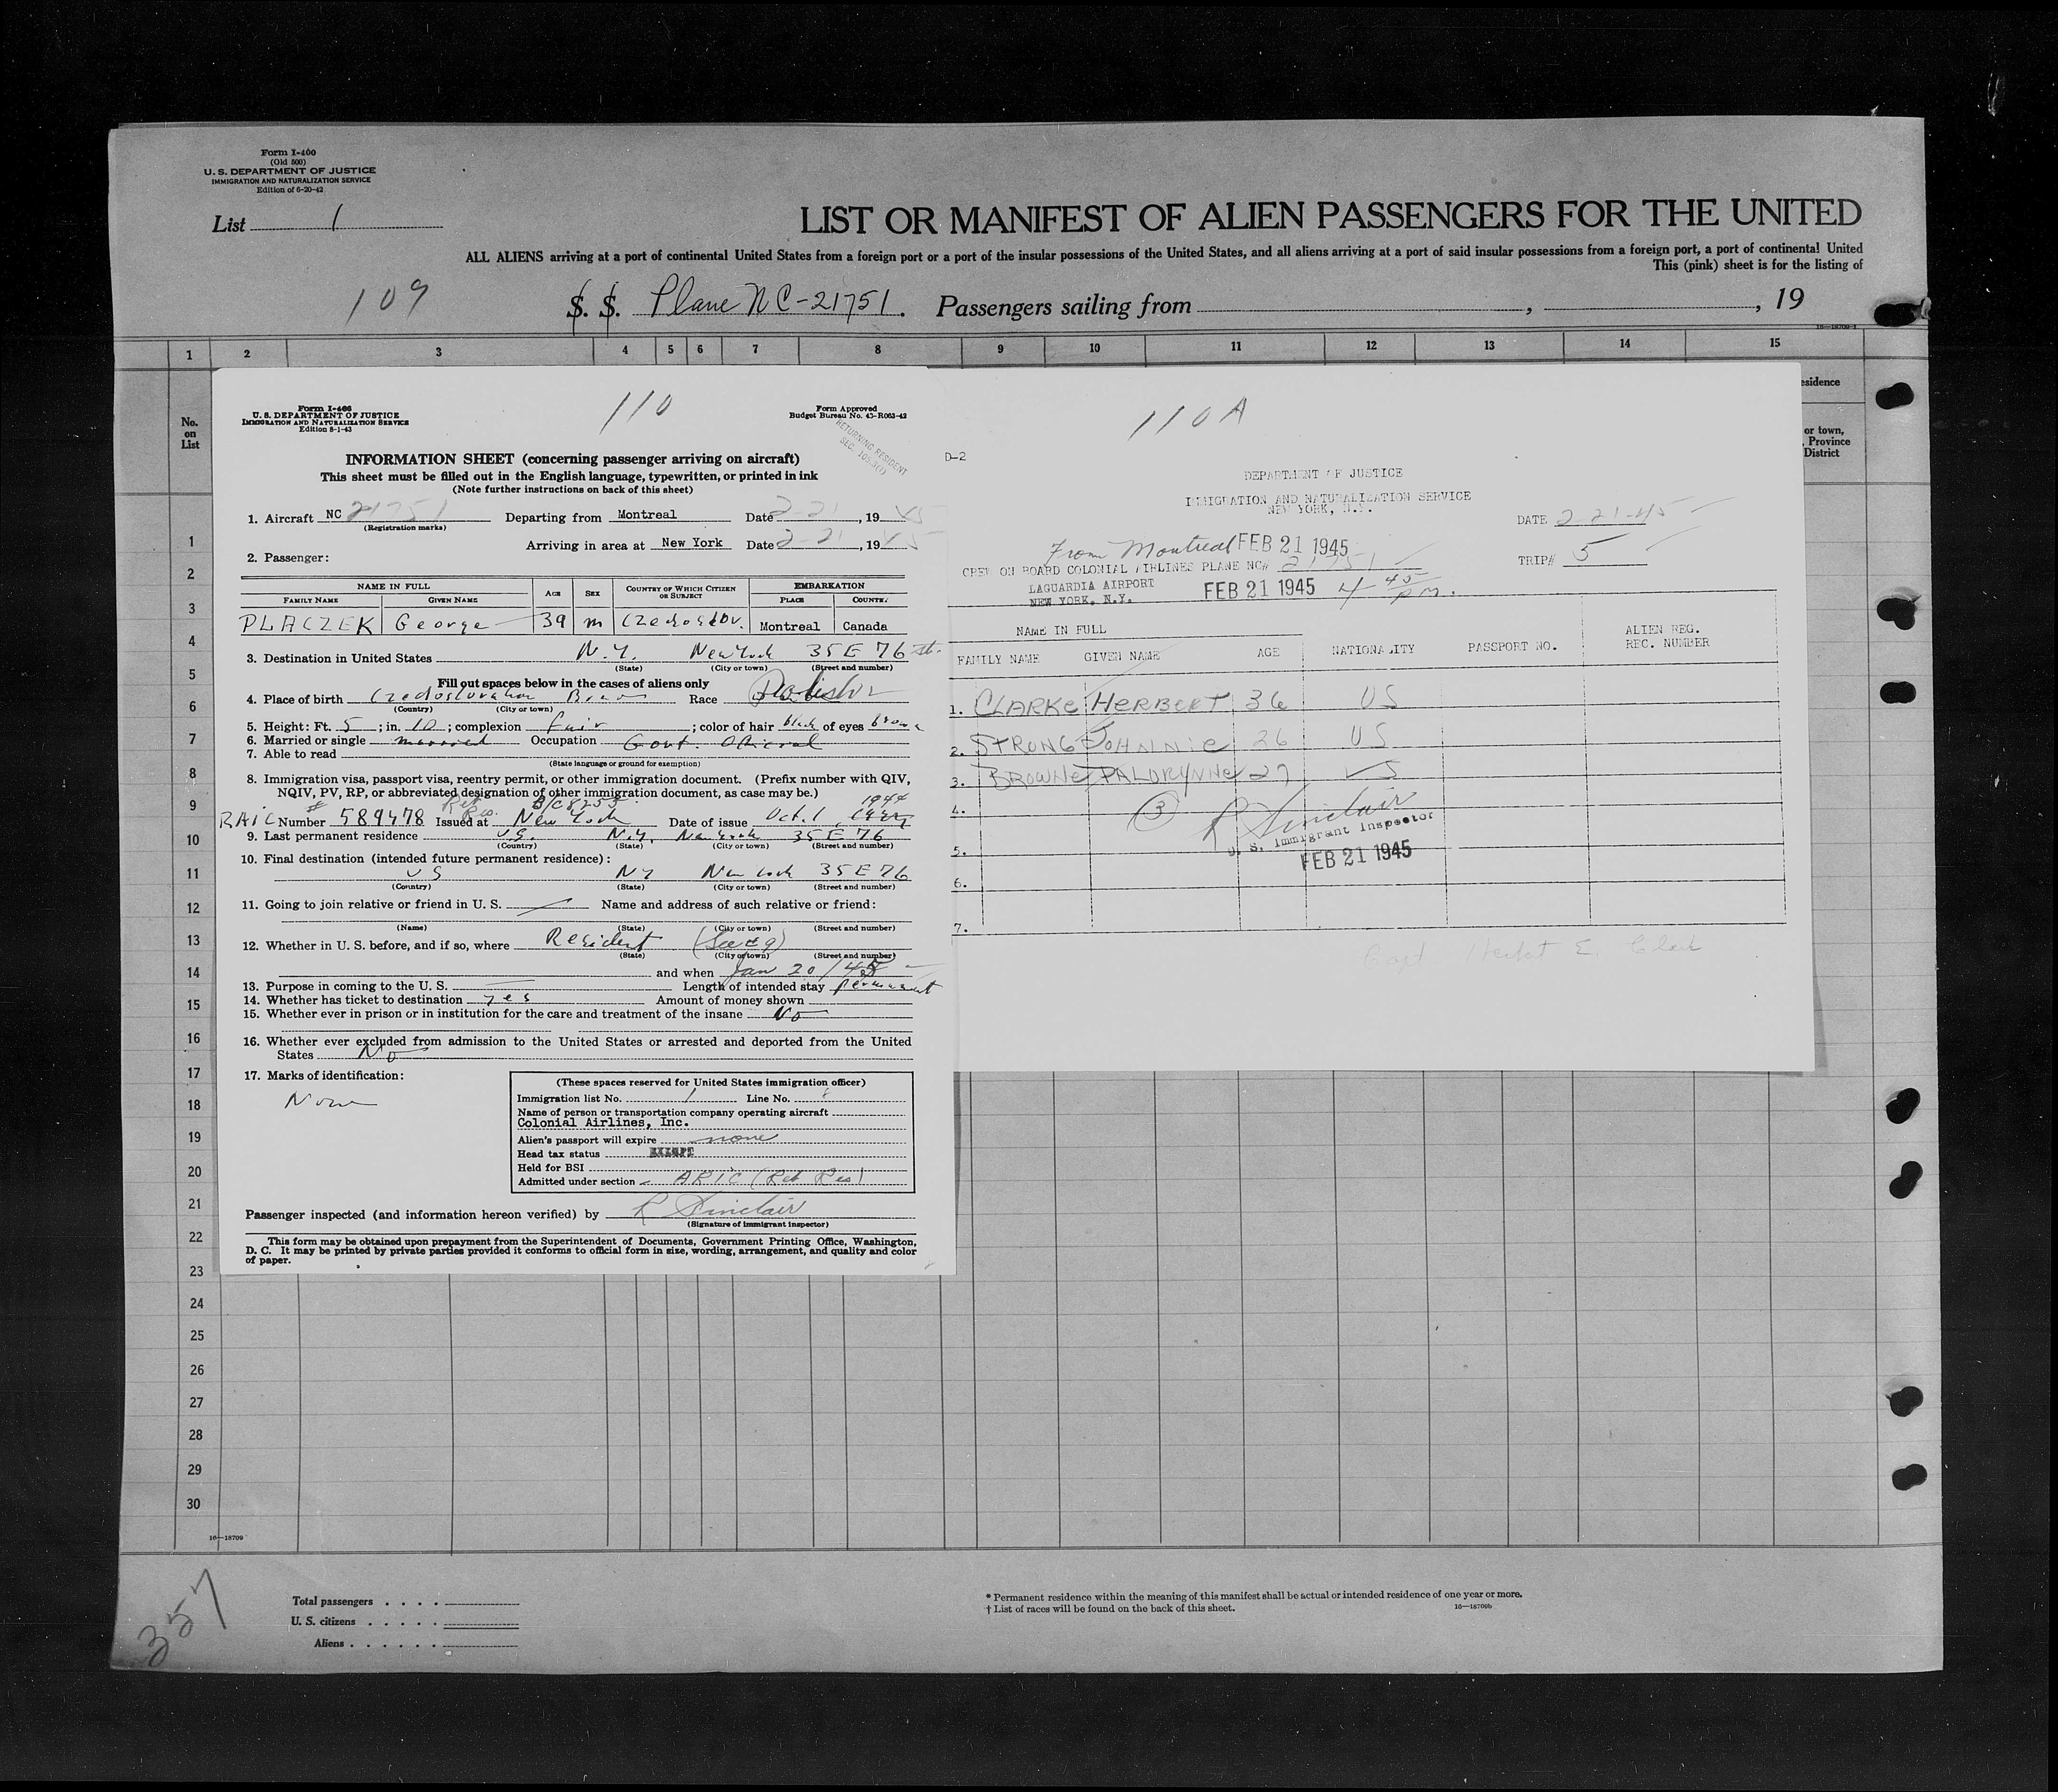 Form I-400
(Old 500)
U. S. DEPARTMENT OF JUSTICE
IMMIGRATION AND NATURALIZATION SERVICE
Edition of 6-20-42
List 1
LIST OR MANIFEST OF ALIEN PASSENGERS FOR THE UNITED
ALL ALIENS arriving at a port of continental United States from a foreign port or a port of the insular possessions of the United States, and all aliens arriving at a port of said insular possessions from a foreign port, a port of continental United
This (pink) sheet is for the listing of
109
S. S. Plane NC-21751. Passengers sailing from , , 19
16—18709-1
1 2 3 4 5 6 7 8 9 10 11 12 13 14 15
esidence
No. on List
or town,
, Province
District
Form I-466
U. S. DEPARTMENT OF JUSTICE
IMMIGRATION AND NATURALIZATION SERVICE
Edition 8-1-43
110
Form Approved
Budget Bureau No. 43-R063-42
RETURNING RESIDENT
INFORMATION SHEET (concerning passenger arriving on aircraft)
This sheet must be filled out in the English language, typewritten, or printed in ink
(Note further instructions on back of this sheet)
1. Aircraft NC 21751 Departing from Montreal Date 2-21, 1945
(Registration marks)
Arriving in area at New York Date 2-21, 1945
2. Passenger:
NAME IN FULL AGE SEX COUNTRY OF WHICH CITIZEN OR SUBJECT EMBARKATION
FAMILY NAME GIVEN NAME PLACE COUNTRY
PLACZEK George 39 m Czechoslov. Montreal Canada
3. Destination in United States N.Y. New York 35 E 76 St.
(State) (City or town) (Street and number)
Fill out spaces below in the cases of aliens only
4. Place of birth Czechoslovakia Race
(Country) (City or town)
5. Height: Ft. 5; in. 10; complexion fair; color of hair black of eyes brown
6. Married or single married Occupation Govt. Official
7. Able to read
(State language or ground for exemption)
8. Immigration visa, passport visa, reentry permit, or other immigration document. (Prefix number with QIV,
NQIV, PV, RP, or abbreviated designation of other immigration document, as case may be.)
B/C8255 1944
RAIC Number 589478 Issued at New York Date of issue Oct. 1,
9. Last permanent residence U.S. N.Y. New York 35 E 76
(Country) (State) (City or town) (Street and number)
10. Final destination (intended future permanent residence):
US NY New York 35 E 76
(Country) (State) (City or town) (Street and number)
11. Going to join relative or friend in U. S. Name and address of such relative or friend:
(Name) (State) (City or town) (Street and number)
12. Whether in U. S. before, and if so, where Resident (See #9)
(State) (City or town) (Street and number)
and when Jan 20/45
13. Purpose in coming to the U. S. Length of intended stay permanent
14. Whether has ticket to destination yes Amount of money shown
15. Whether ever in prison or in institution for the care and treatment of the insane No
16. Whether ever excluded from admission to the United States or arrested and deported from the United
States No
17. Marks of identification:
None
(These spaces reserved for United States immigration officer)
Immigration list No. 1 Line No.
Name of person or transportation company operating aircraft
Colonial Airlines, Inc.
Alien's passport will expire none
Head tax status EXEMPT
Held for BSI
Admitted under section ARIC (Ret Res)
Passenger inspected (and information hereon verified) by R Sinclair
(Signature of immigrant inspector)
This form may be obtained upon prepayment from the Superintendent of Documents, Government Printing Office, Washington,
D. C. It may be printed by private parties provided it conforms to official form in size, wording, arrangement, and quality and color
of paper.
110 A
D-2
DEPARTMENT OF JUSTICE
IMMIGRATION AND NATURALIZATION SERVICE
NEW YORK, N.Y.
DATE 2-21-45
From Montreal FEB 21 1945
TRIP# 5
CREW ON BOARD COLONIAL AIRLINES PLANE NC# 21751
LAGUARDIA AIRPORT
NEW YORK, N.Y. FEB 21 1945 4-45 pm.
NAME IN FULL
FAMILY NAME GIVEN NAME AGE NATIONALITY PASSPORT NO. ALIEN REG. REC. NUMBER
1. CLARKE HERBERT 36 US
2. STRONG JOHNNIE 26 US
3. BROWNE 27 US
4. 3 R Sinclair
U. S. Immigrant Inspector
5. FEB 21 1945
6.
7.
Capt Herbert E. Clark
1
2
3
4
5
6
7
8
9
10
11
12
13
14
15
16
17
18
19
20
21
22
23
24
25
26
27
28
29
30
16—18709
357
Total passengers . . . .
U. S. citizens . . . . .
Aliens . . . . . .
* Permanent residence within the meaning of this manifest shall be actual or intended residence of one year or more.
† List of races will be found on the back of this sheet. 16—18709b